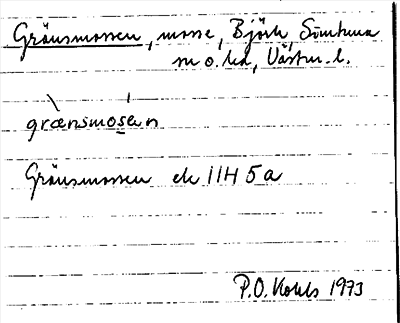 Gränsmossen, mosse, Björk
sn o. hd, Västm. l.
grænsmosen
Gränsmossen ek 11H 5a
P.O. 1973